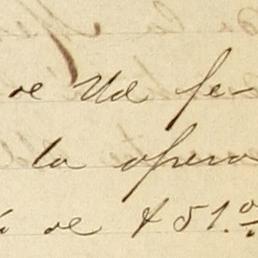 de Ud fe-
la opera
de $51.0